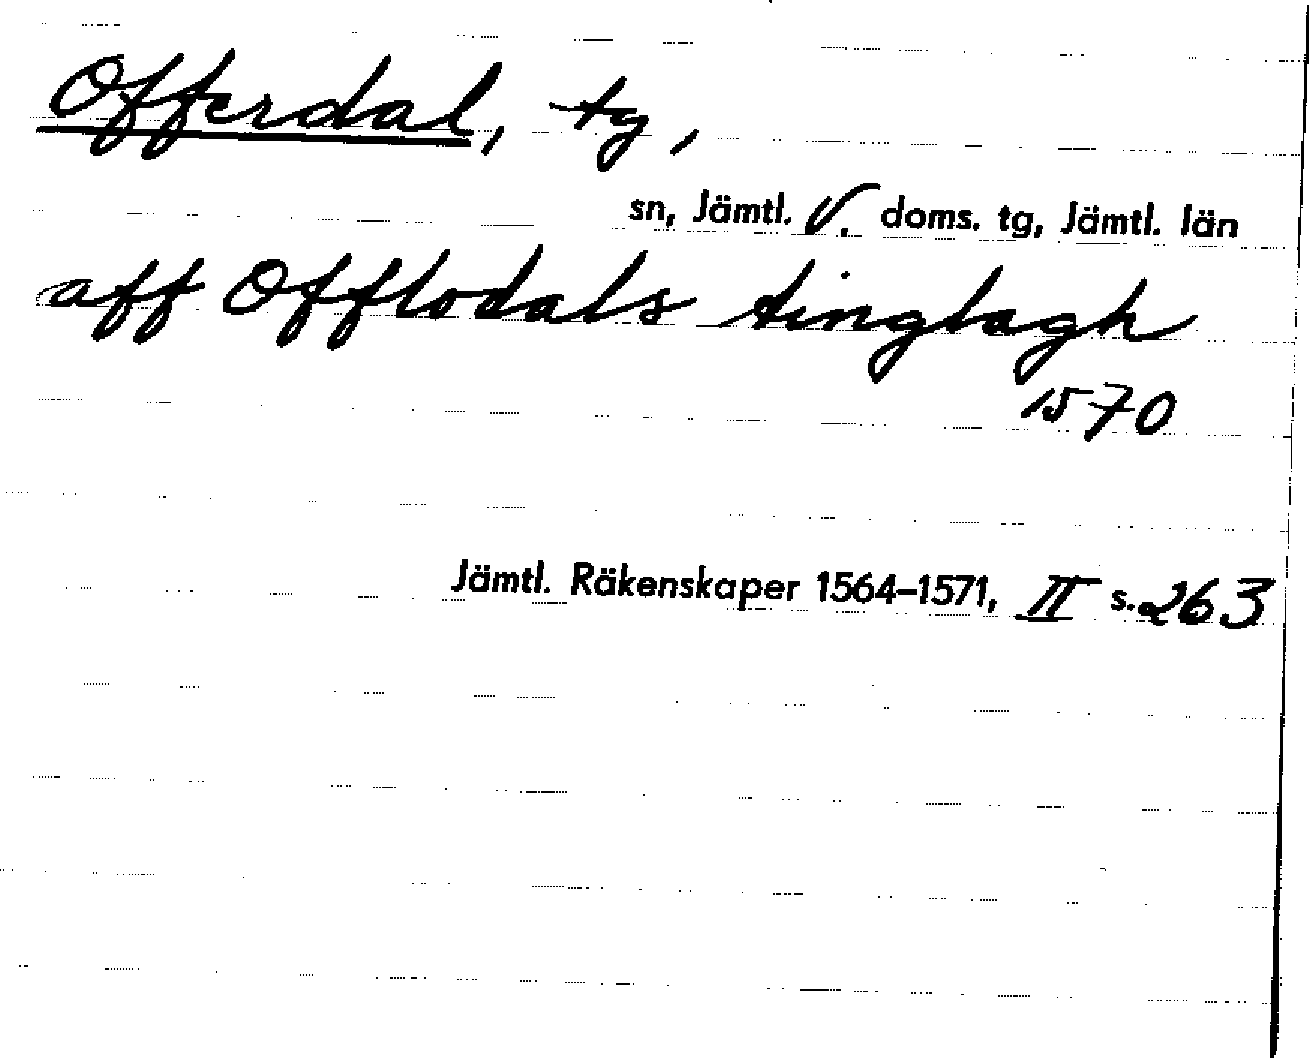 Offerdal, tg,
sn, Jämtl. V. doms. tg, Jämtl. län
aff Offlodals tinglagh
1570
Jämtl. Räkenskaper 1564–1571, II s. 263